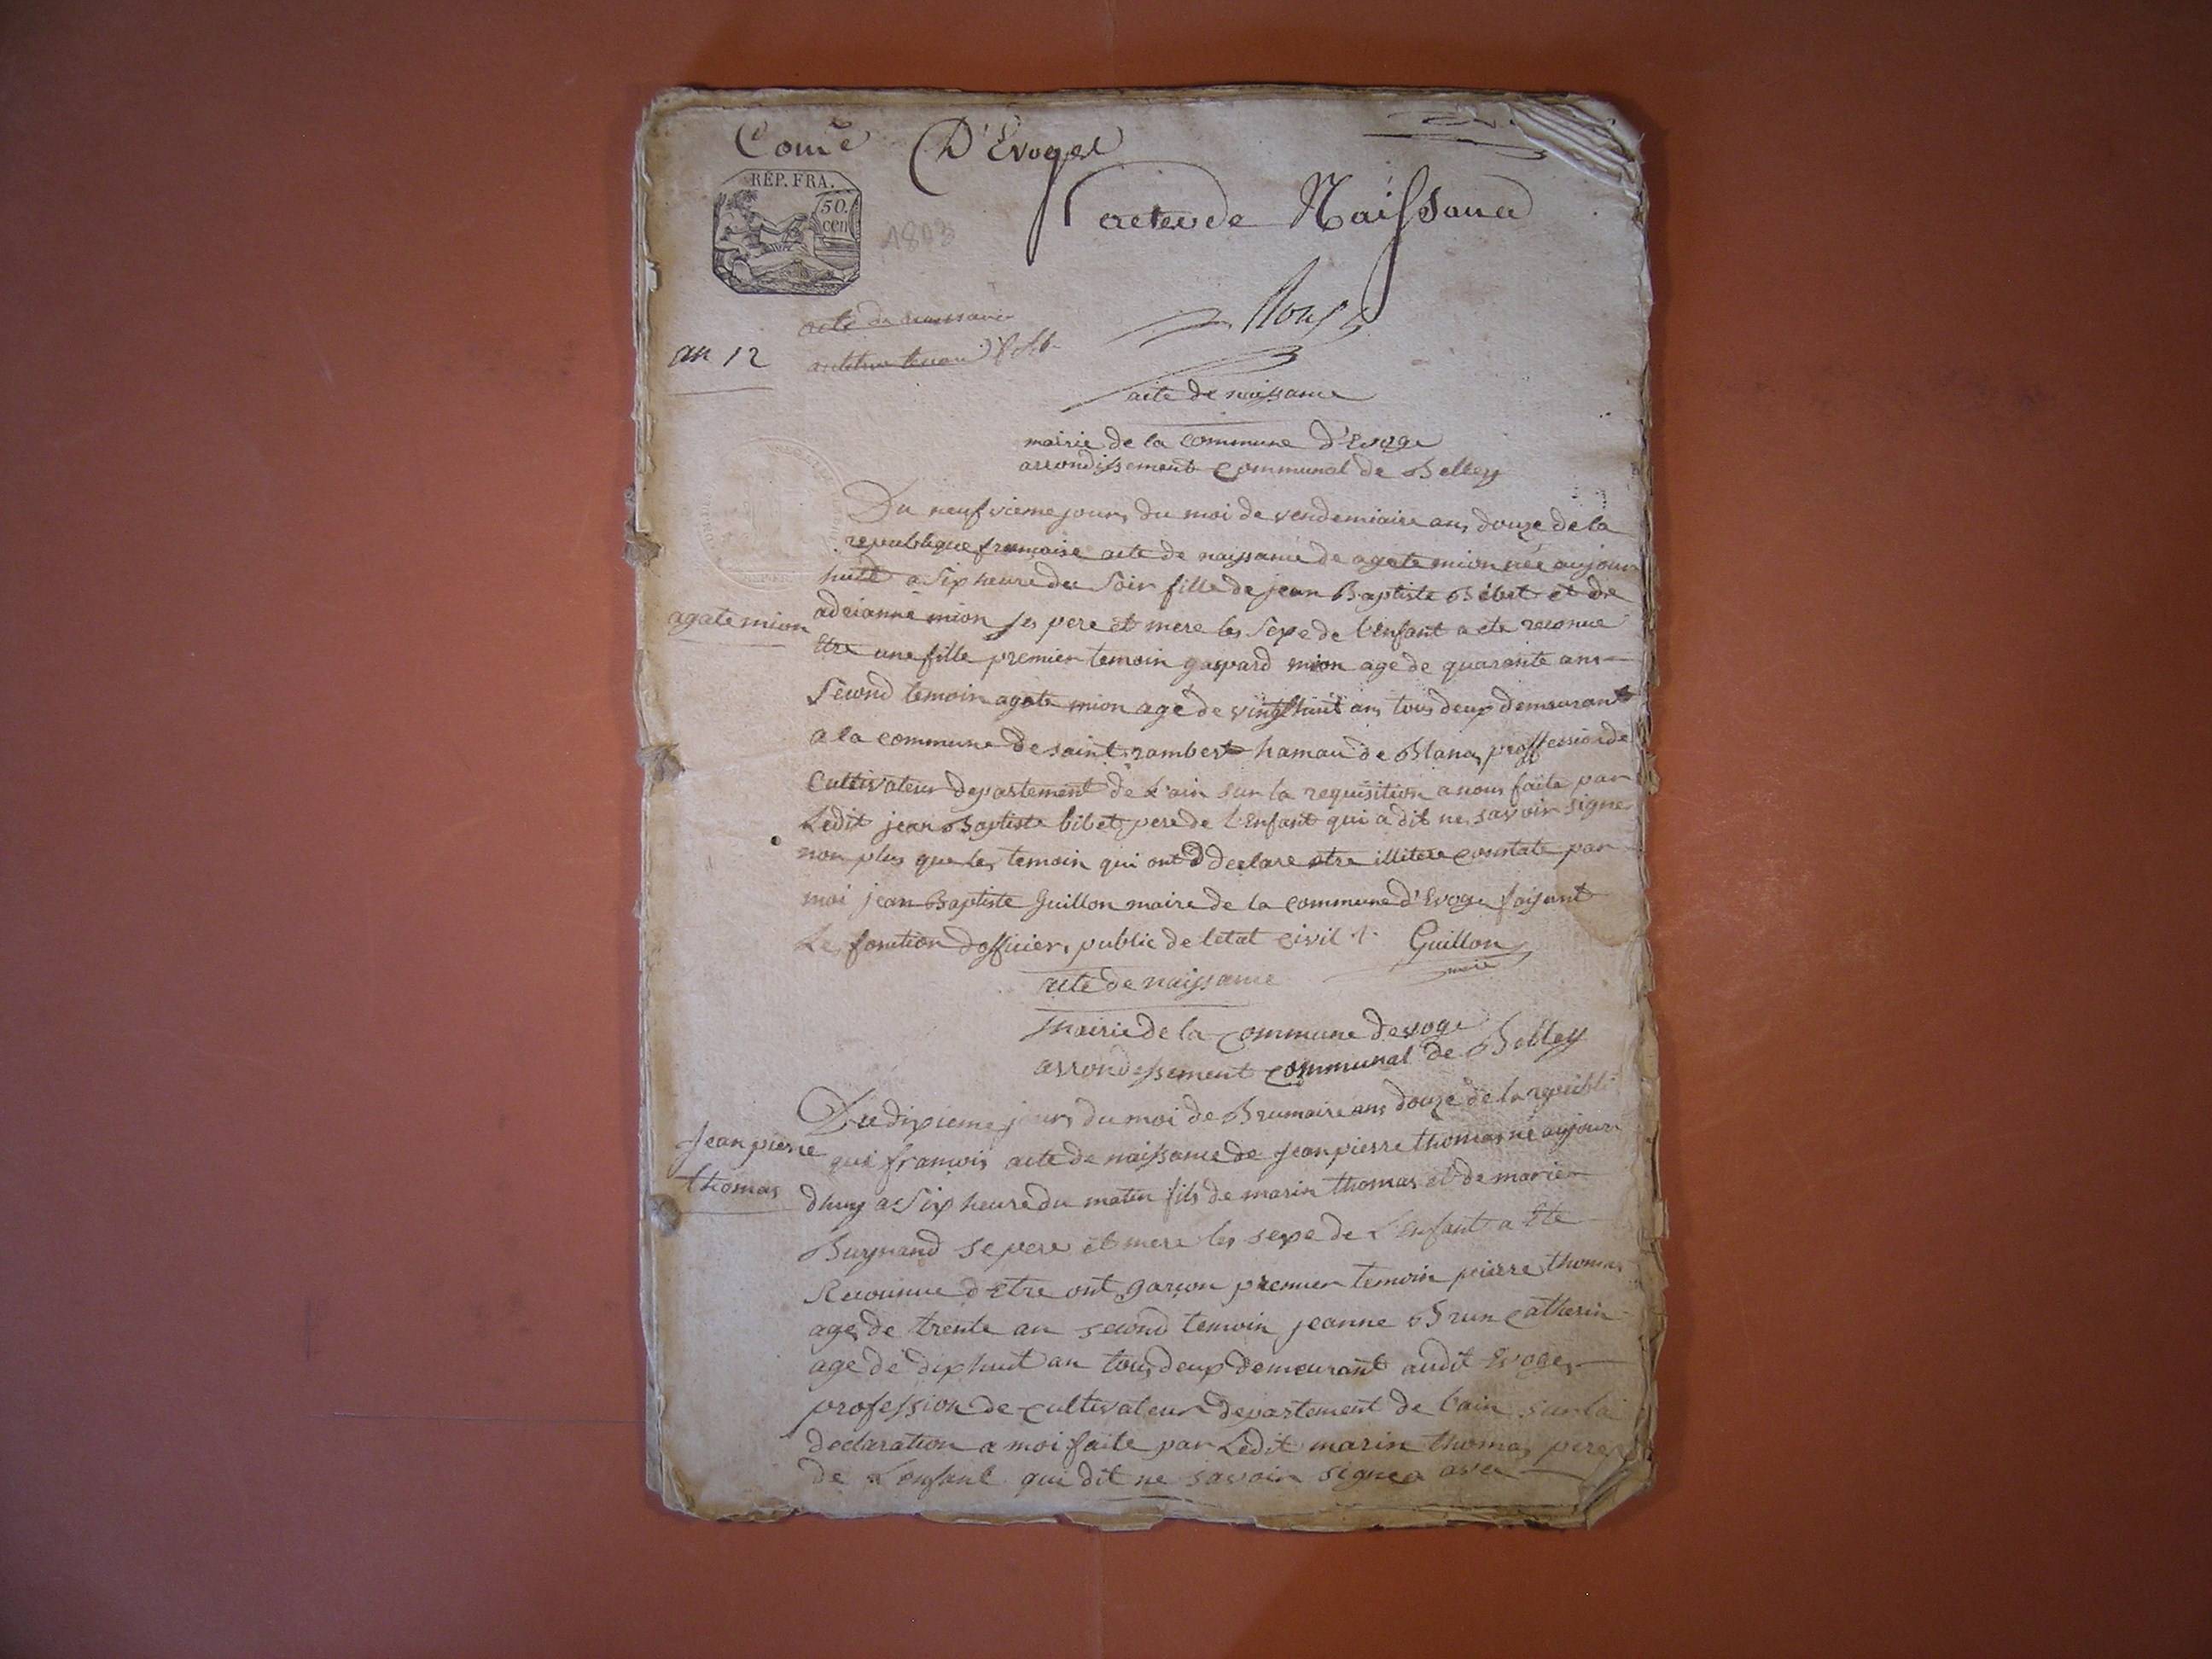 Com̃e D'Evoges
RÉP. FRA.
50.
cen
1803
acte de Naissance
acte de naissance
an 12
acte de naissance
mairie de la commune d'Evoge
arrondissement communal de Belley
Du neufvieme jours du moi de vendemiaire ans douze de la
republique francaise acte de naissance de agate mion née aujour
huit a six heure du soir fille de jean Baptiste Bibet et de
agate mion
adrianne mion ses pere et mere les sexe de l'enfant a ete reconue
Etre une fille premier temoin gaspard mion age de quarante ans
second temoin agate mion agé de vingt huit ans tous deux demeurant
a la commune de saint rambert hamau de Blanas proffession de
Cultivateur departement de l'ain sur la requisition a nous faite par
Ledit jean Baptiste bibet pere de l'enfant qui a dit ne savoir signer
non plus que les temoin qui ont declare etre illitere constate par
moi jean Baptiste Guillon maire de la commune d'Evoge faisant
Le fonction dofficier public de letat civil Guillon
maire
acte de naissance
Mairie de la commune devoge
arrondessement communal de Belley
Du dixieme jours du moi de Brumaire ans douze de la republi
Jean pierre
que francois acte de naissance de Jean pierre thomas né aujour
thomas
dhuy a six heure du matin fils de marin thomas et de marie
Burnand se pere et mere les sexe de L'enfant a Ete
Reconnue d'Etre ont garcon premier temoin pierre thomas
age de trente an second temoin jeanne Brun Catherin
age de dix huit an tous deux demeurant audit Evoges
profession de cultivateur departement de l'ain sur la
declaration a moi faite par Ledit marin thomas pere
de L'enfant qui dit ne savoir signea avec